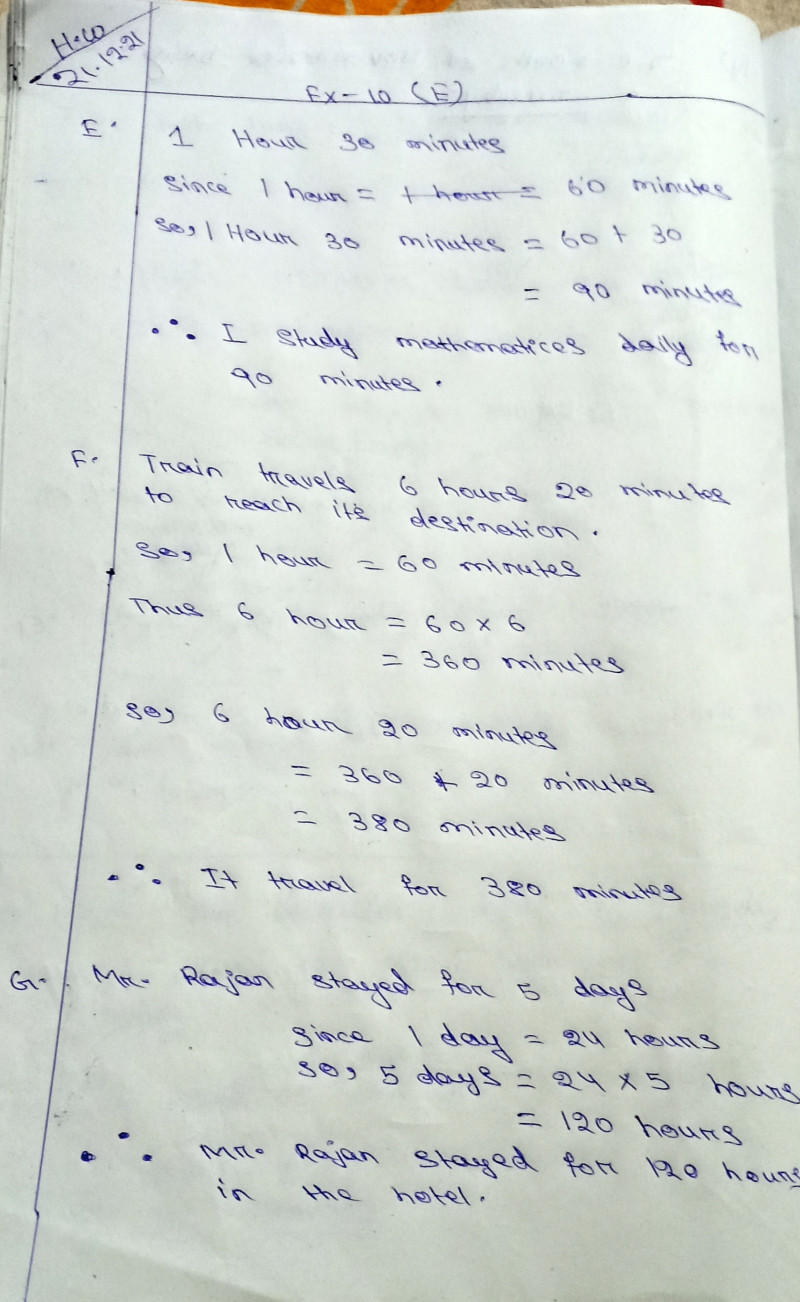 H.W
21.12.21
Ex-10 (E)
E. 1 Hour 30 minutes
since 1 hour = 1 hour = 60 minutes
so, 1 Hour 30 minutes = 60 + 30
= 90 minutes
∴ I study mathematices daily for
90 minutes.
F. Train travels 6 hours 20 minutes
to reach its destination.
so, 1 hour = 60 minutes
Thus 6 hour = 60 × 6
= 360 minutes
so, 6 hour 20 minutes
= 360 + 20 minutes
= 380 minutes
∴ It travel for 380 minutes
G. Mr. Rajan stayed for 5 days
since 1 day = 24 hours
so, 5 days = 24 × 5 hours
= 120 hours
∴ Mr. Rajan stayed for 120 hours
in the hotel.